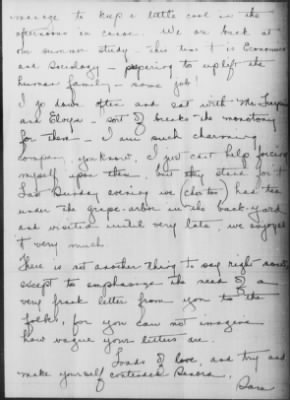 manage to keep a little cool in the
afternoons in canoe. We are back at
our summer study - this time it is Economics
and Sociology - preparing to uplift the
human family - some job!
I go down often and eat with Mr.
and Eloya - sort of breaks the monotony
for them - I am such charming
company, you know, I just cant help forcing
myself upon them, but they stand for it
Last Sunday evening we had tea
under the grape-arbor in the back-yard
and visited until very late we enjoyed
it very much.
There is not another thing to say right now,
except to emphasize the need of a
very frank letter from you to the
folks, for you can not imagine
how vague your letters are.
Loads of love, and try and
make yourself contended
Sara